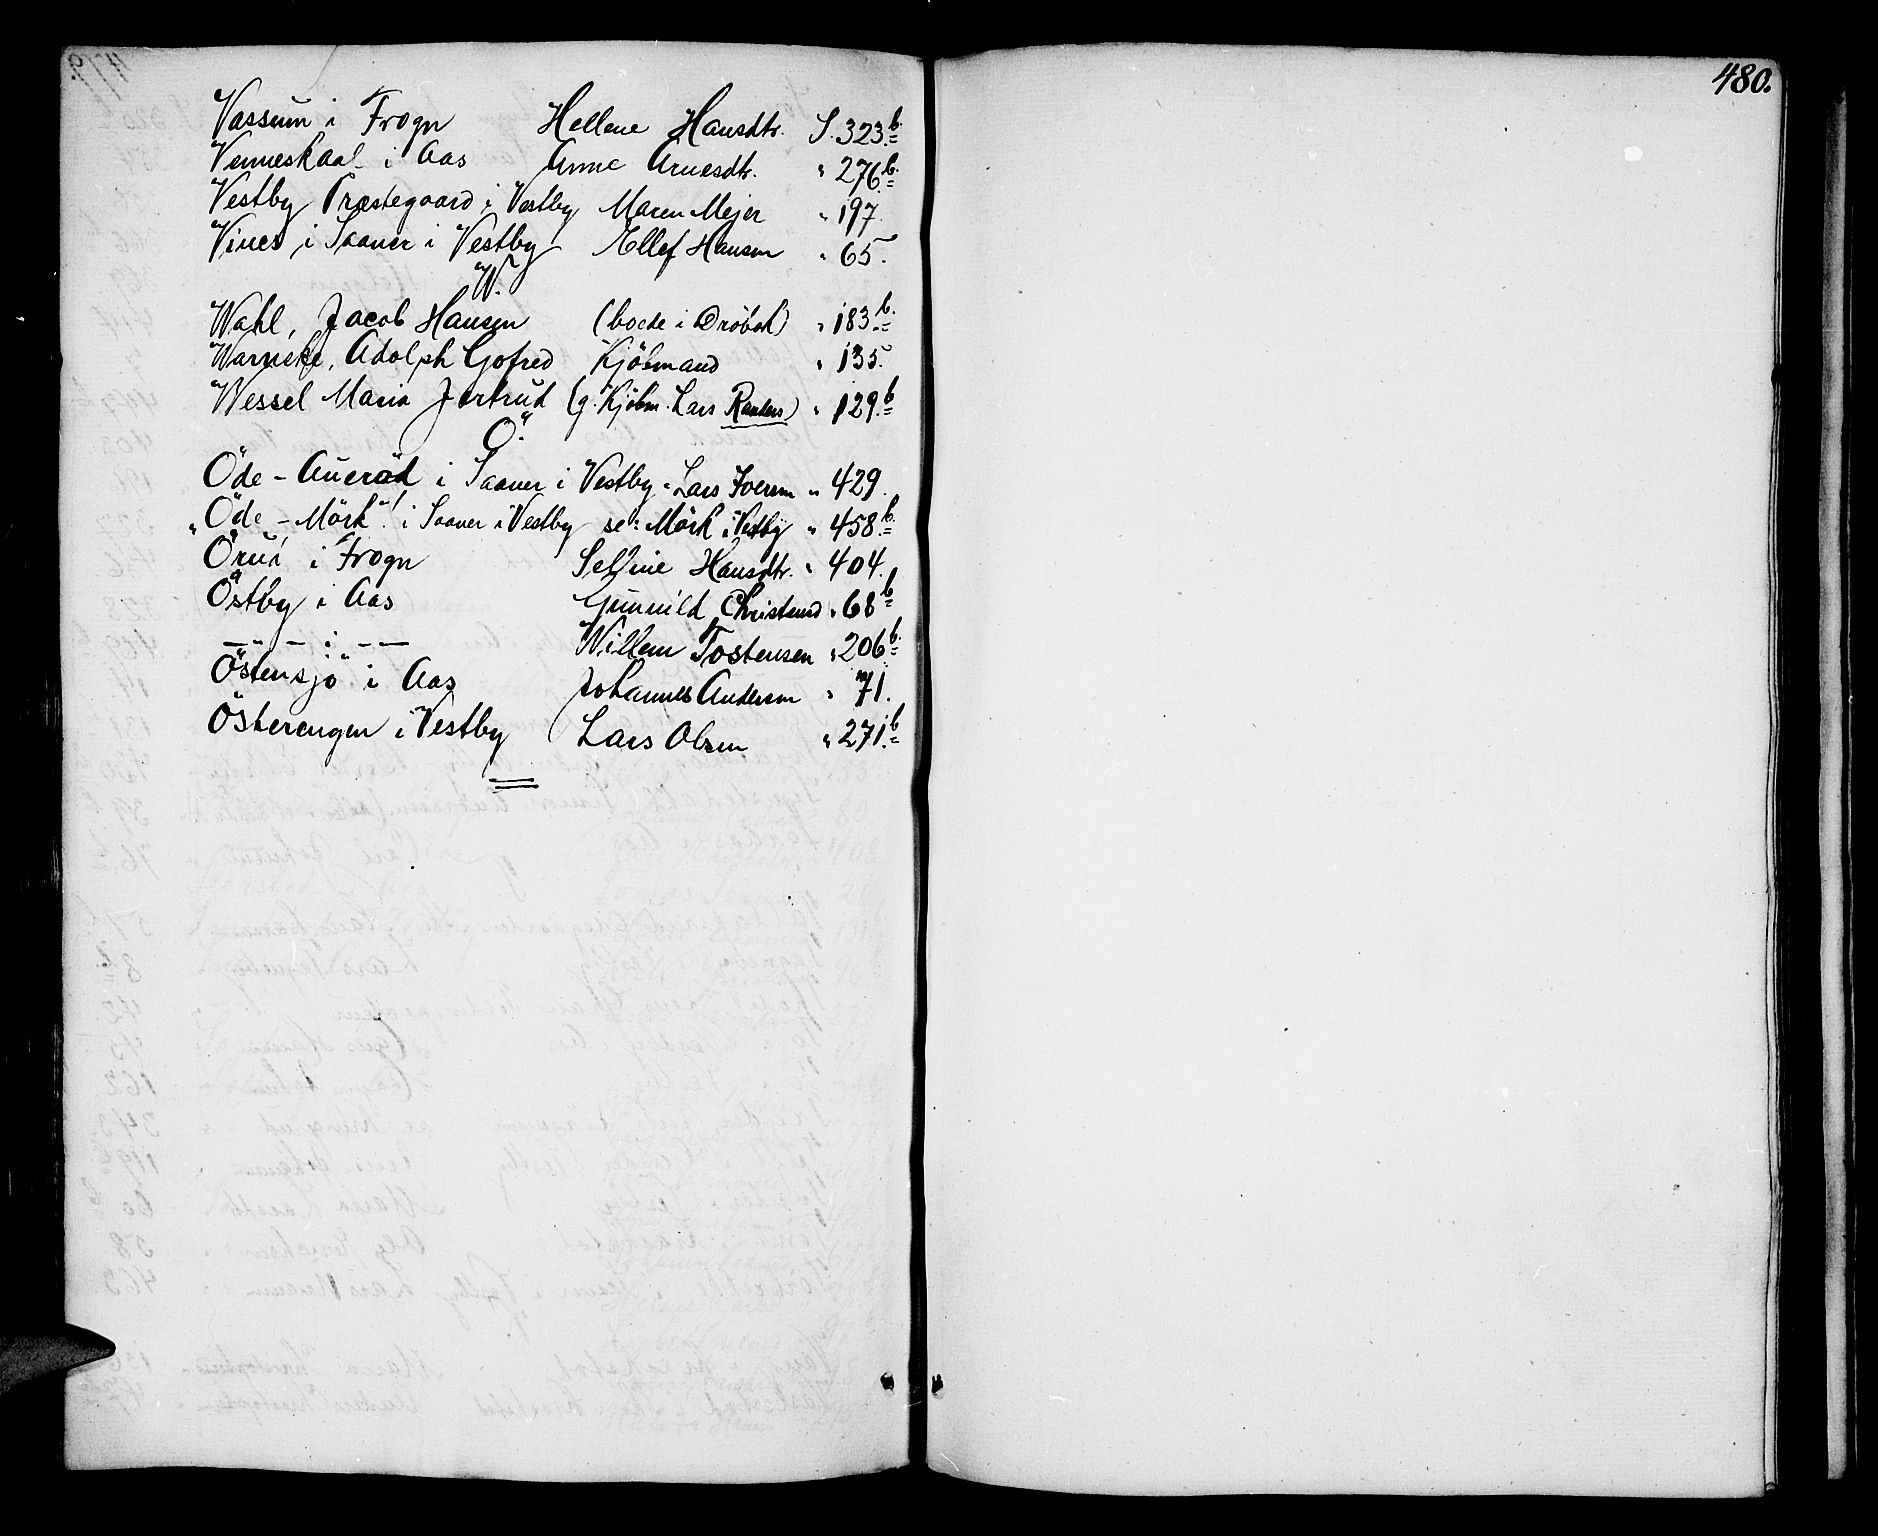 480.
Vassum i Frogn Hellene Hansdtr. S. 323.b.
Venneskaal i Aas Anne Arnesdtr. " 276.b.
Vestby Præstegaard i Vestby Maren Mejer " 197.
Viner i Saaner i Vestby Ellef Hansen " 65.
W.
Wahl, Jacob Hansen (boede i Dröbak) " 183.b.
Warneke, Adolph Gofred Kjöbmand " 135.
Wessel Maria Jertrud (g. Kjöbm. Lars Randers) " 129.b
Ö.
Öde-Aueröd i Saaner i Vestby - Lars Iversen " 429.
"Öde-Mörk"! i Saaner i Vestby se: Mörk i Vestby " 458.b.
Örud i Frogn Selline Hansdtr. " 404.
Östby i Aas Gunnild Christensd " 68b
— " — : — " — Willem Tostensen " 206.b.
Östensjö i Aas Johannes Andersen " 71.
Österengen i Vestby Lars Olsen " 271.b